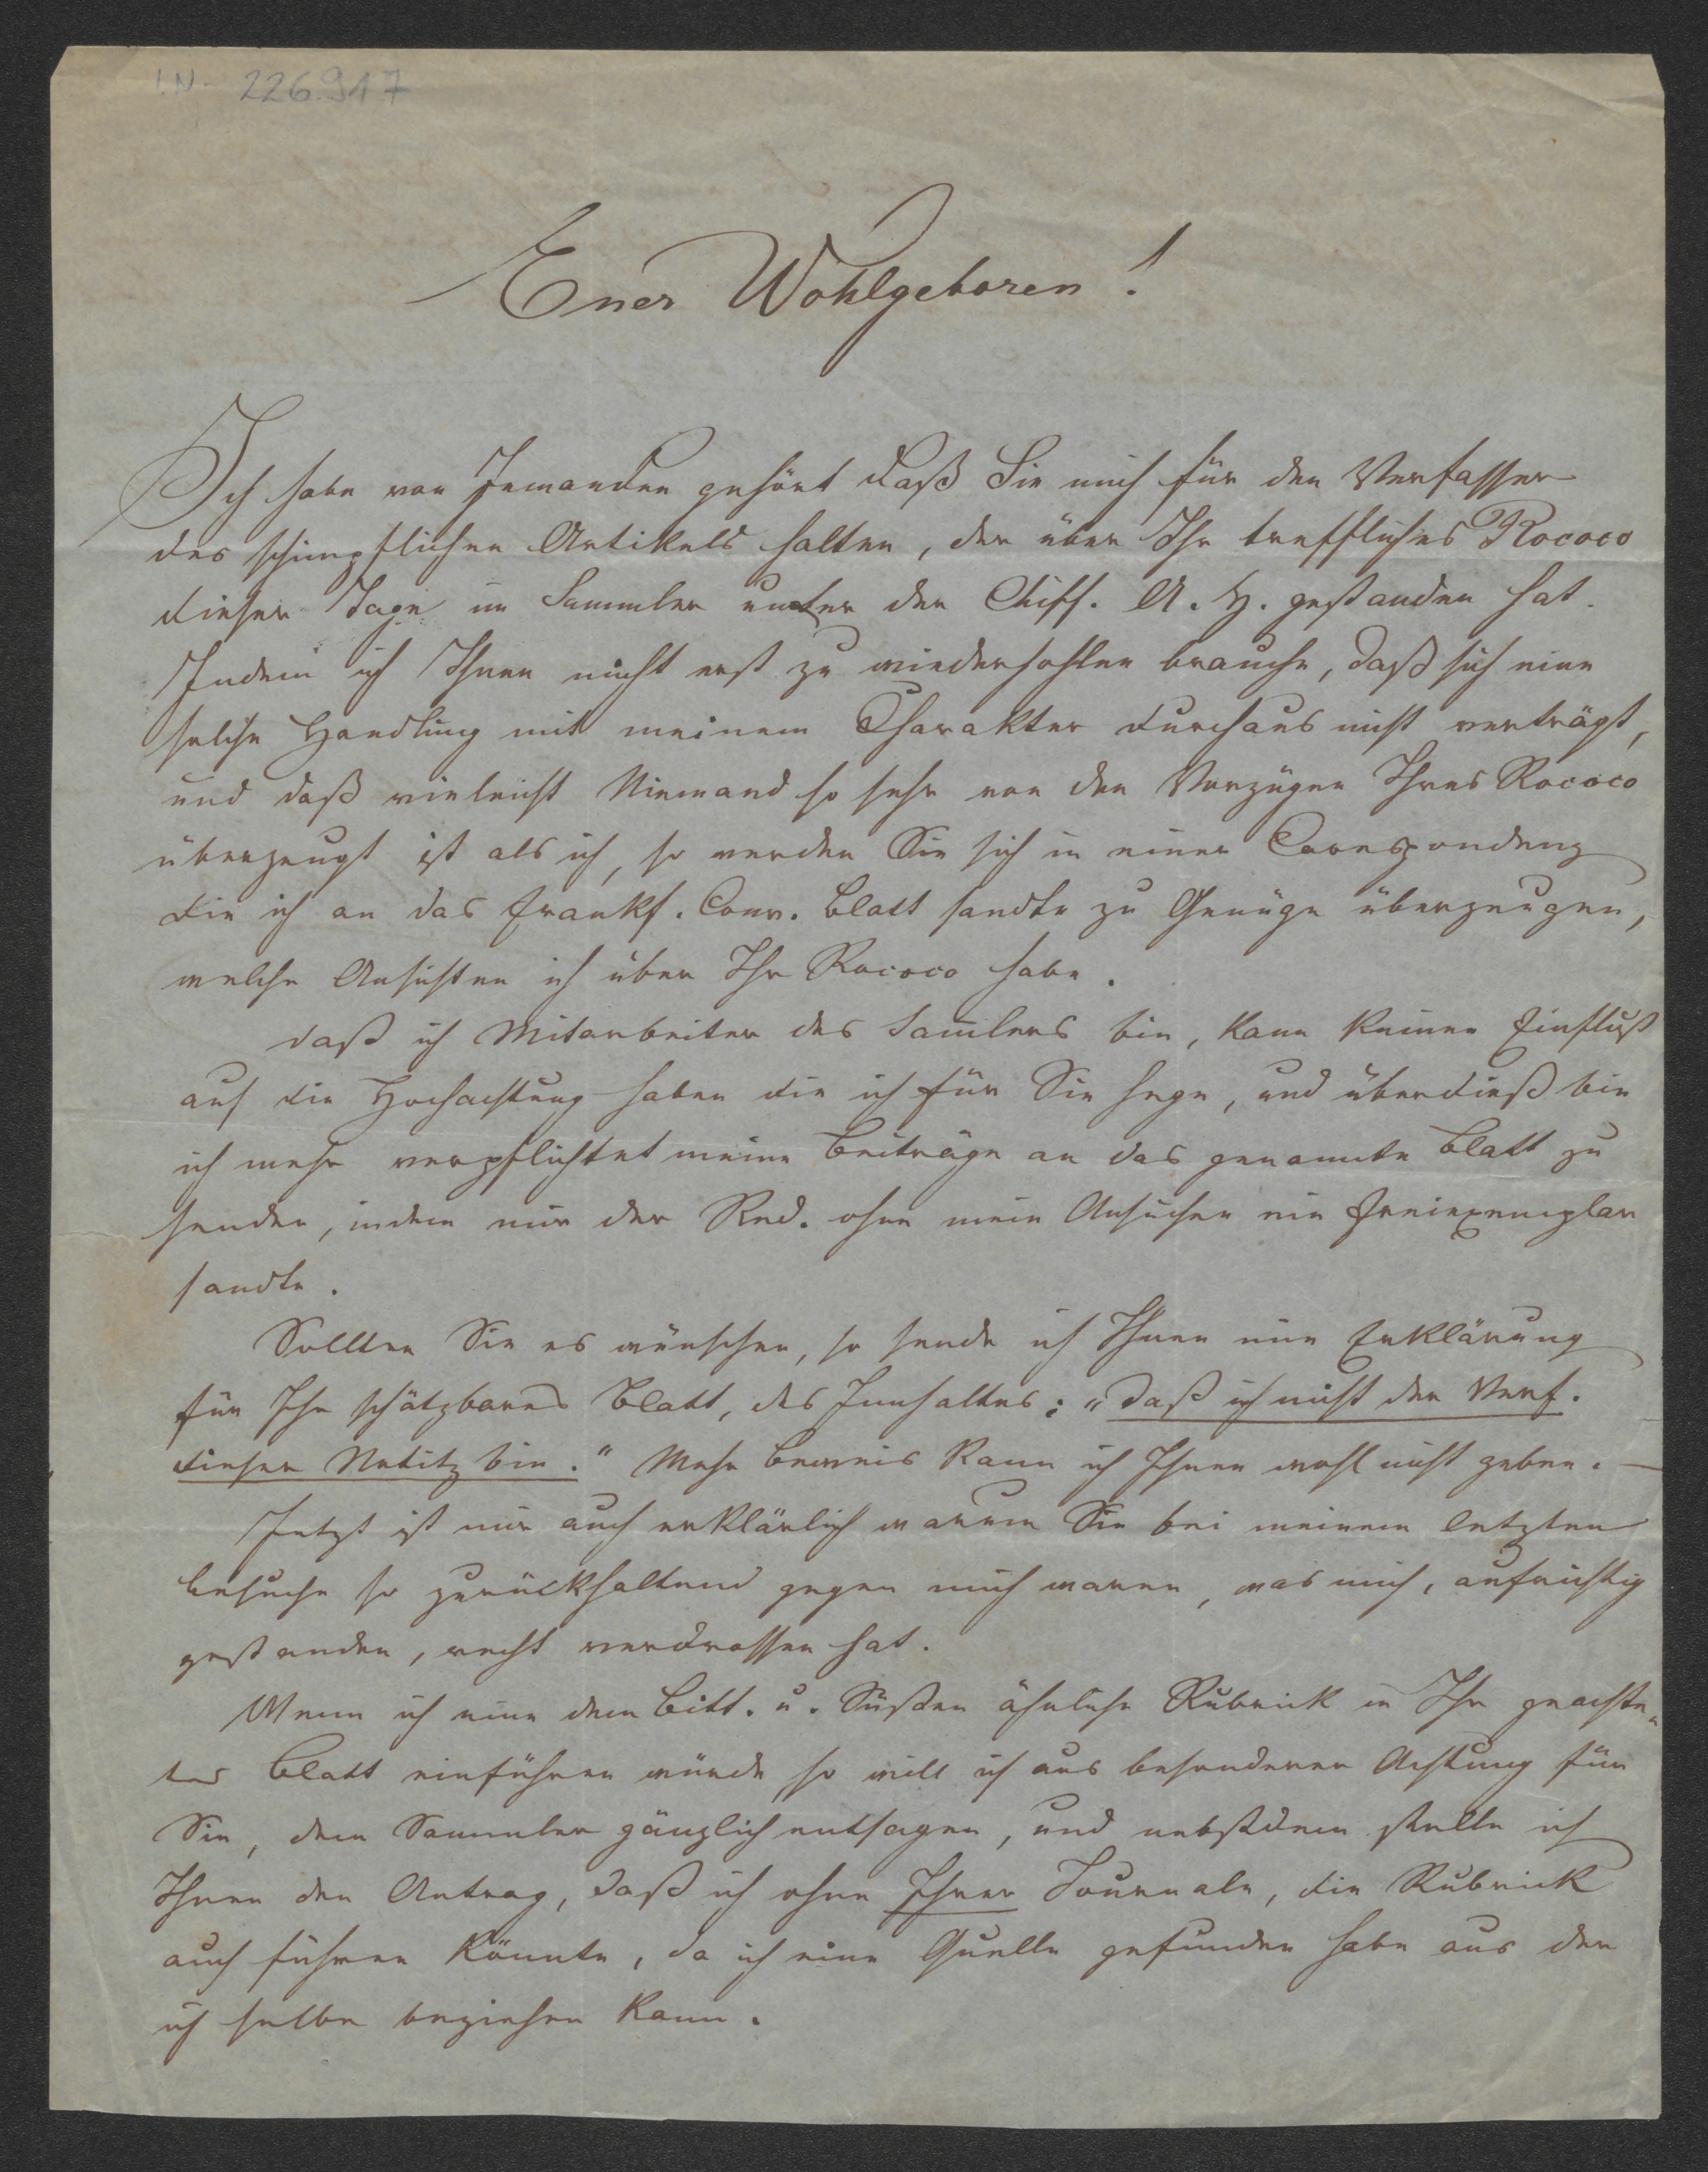 I.N. 226.917
Euer Wohlgeboren!
Ich habe von Jemanden gehört daß Sie mich für den Verfasser
des schimpflichen Artikels halten, der über Ihr treffliches Rococo
dieser Tage im Sammler unter der Chiff. A. H. gestanden hat.
Indem ich Ihnen nicht erst zu wiederhohlen brauche, daß sich eine
solche Handlung mit meinem Charakter durchaus nicht verträgt,
und daß vieleicht Niemand so sehr von den Vorzügen Ihres Rococo
überzeugt ist als ich, so werden Sie sich in einer Correspondenz
die ich an das Frankf. Conv. Blatt sandte zu Genüge überzeugen,
welche Ansichten ich über Ihr Rococo habe.
Daß ich Mitarbeiter des Sam̅lers bin, kann keinen Einfluß
auf die Hochachtung haben die ich für Sie hege, und überdieß bin
ich mehr verpflichtet meine Beiträge an das genannte Blatt zu
senden, indem mir der Red. ohne mein Ansuchen ein Freiexemplar
sandte.
Sollten Sie es wünschen, so sende ich Ihnen eine Erklärung
für Ihr schätzbares Blatt, des Innhaltes: „daß ich nicht der Verf.
dieser Notitz bin." Mehr Beweis kann ich Ihnen wohl nicht geben. —
Jetzt ist mir auch erklärlich warum Sie bei meinem letzten
Besuche so zurückhaltend gegen mich waren, was mich, aufrichtig
gestanden, recht verdrossen hat.
Wenn ich eine dem Bitt. u. Süßen ähnliche Rubrick in Ihr geachte„
tes Blatt einführen würde so will ich aus besonderer Achtung für
Sie, dem Sammler gänzlich entsagen, und nebstdem stelle ich
Ihnen den Antrag, daß ich ohne Ihrer Journale, die Rubrick
auch führen könnte, da ich eine Quelle gefunden habe aus der
ich selbe beziehen kann.